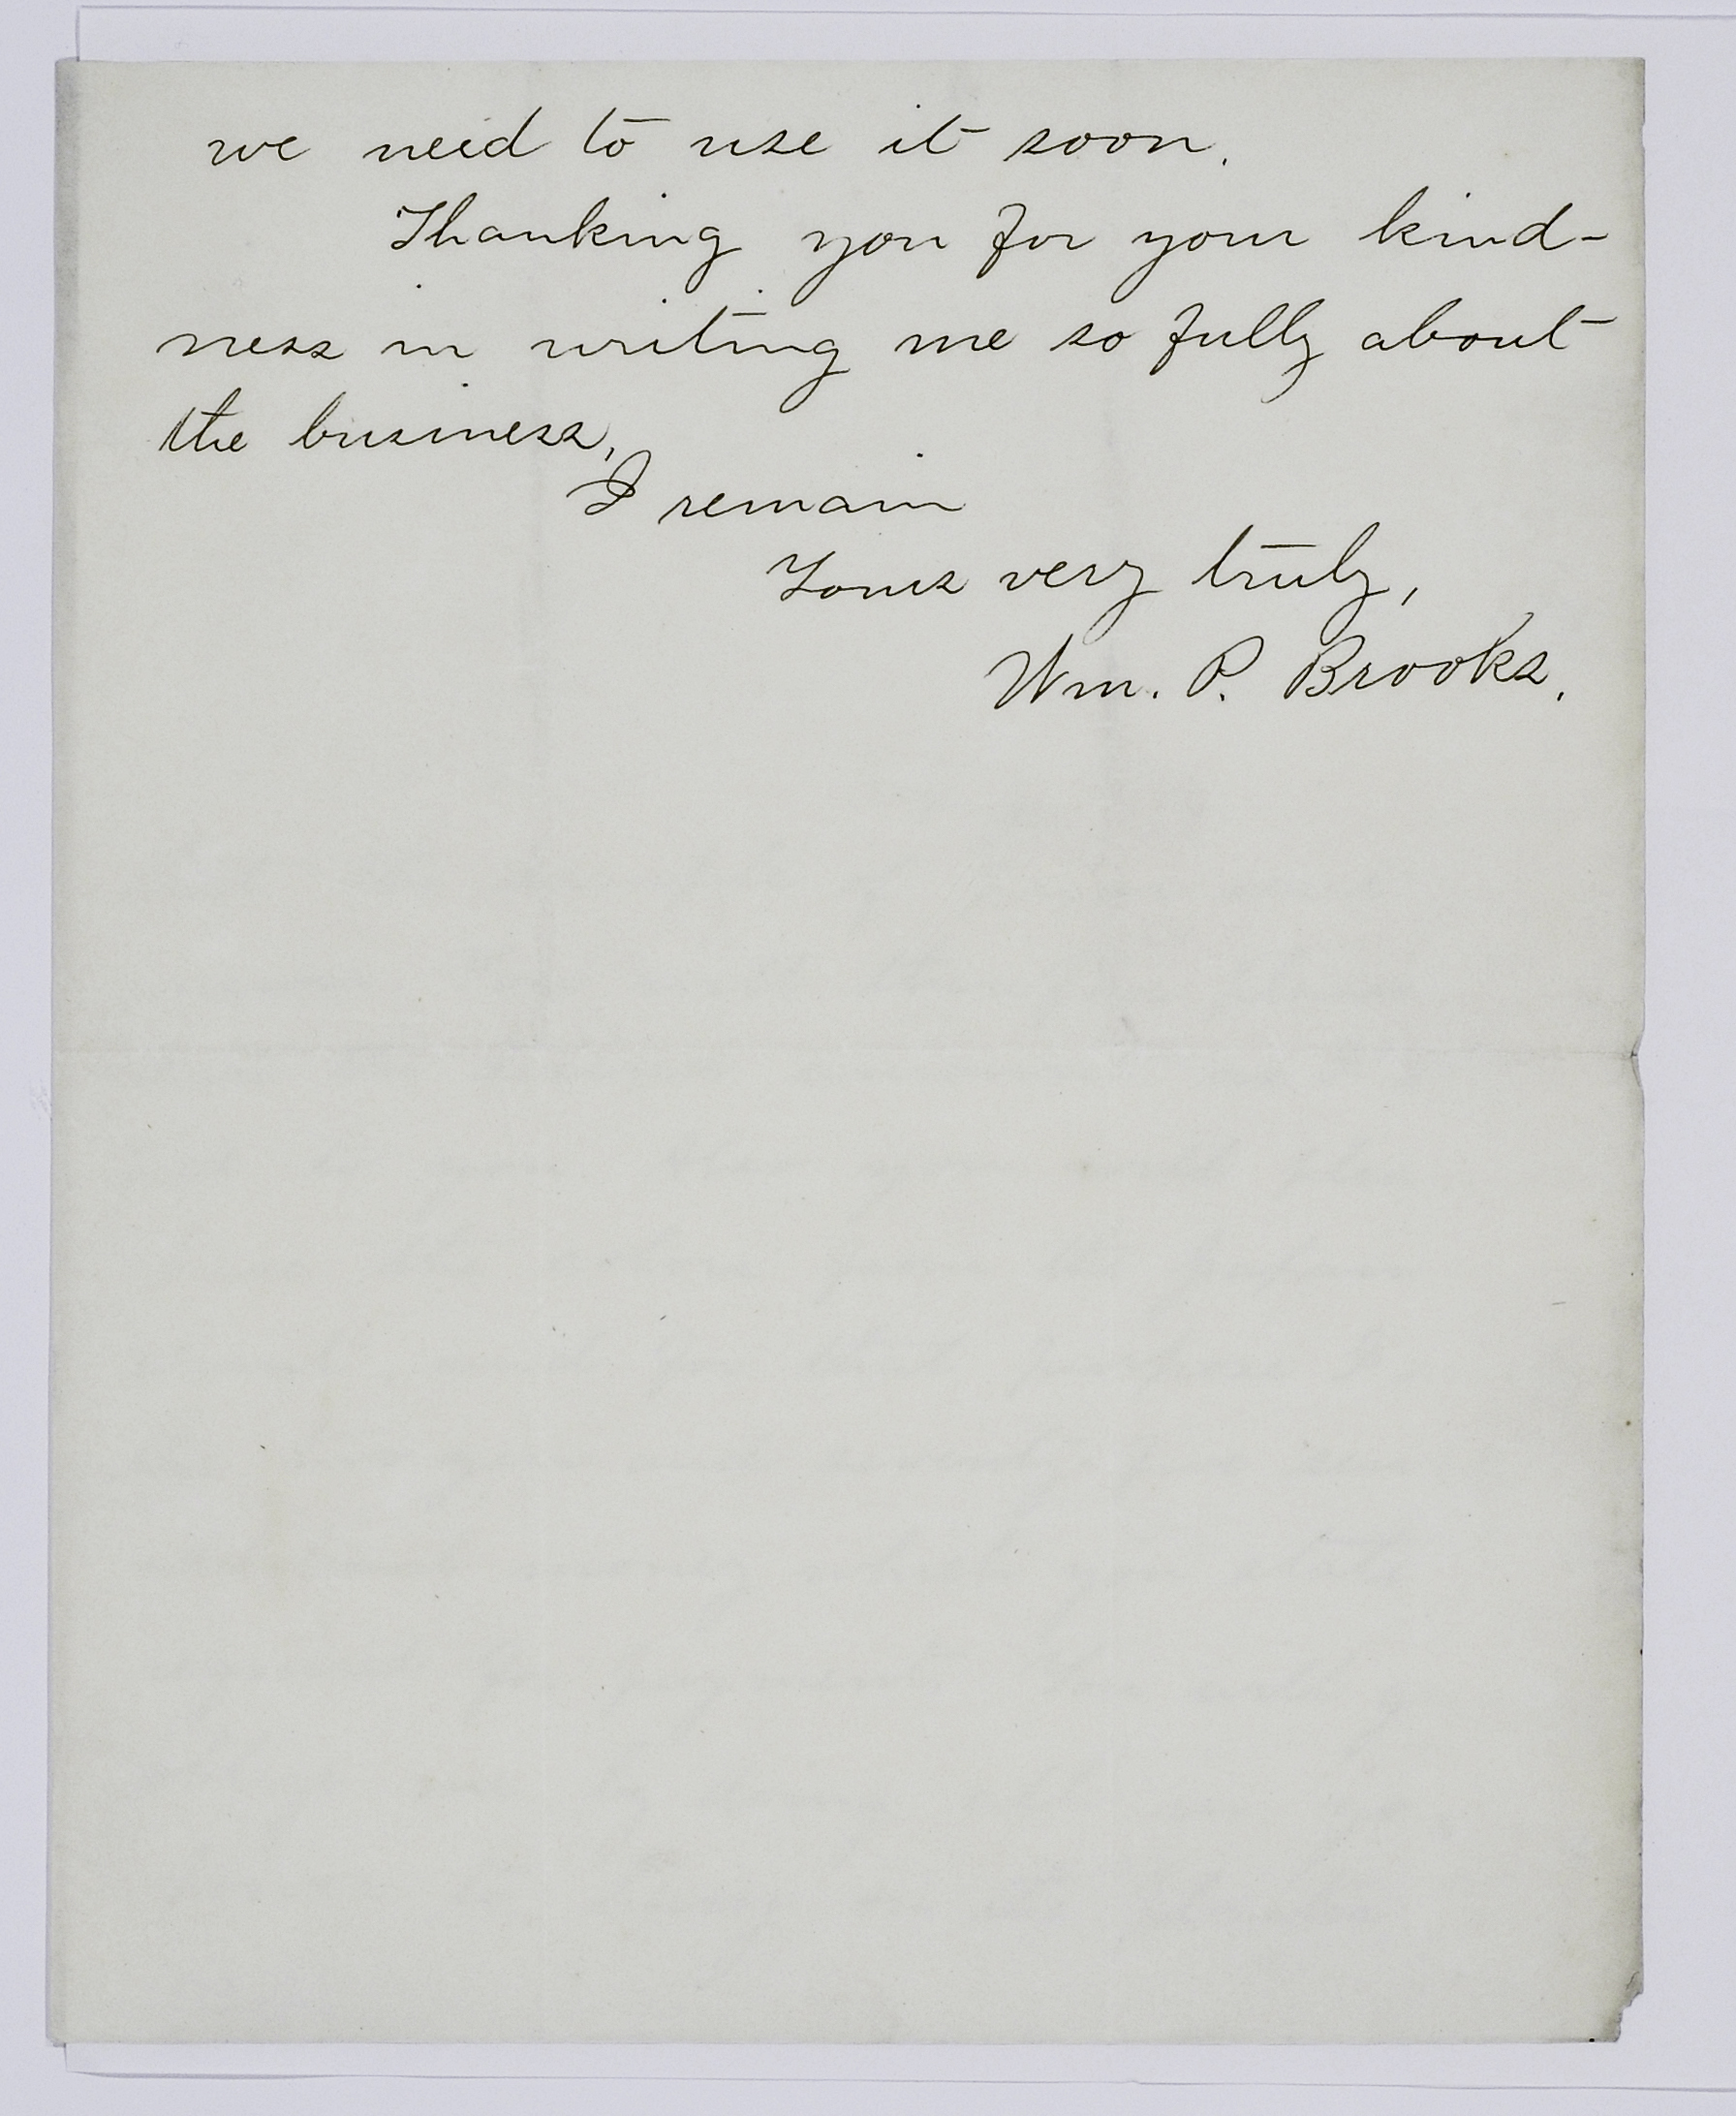 we need to use it soon.
Thanking you for your kind-
ness in writing me so fully about
the business,
I remain
Yours very truly,
Wm. P. Brooks.